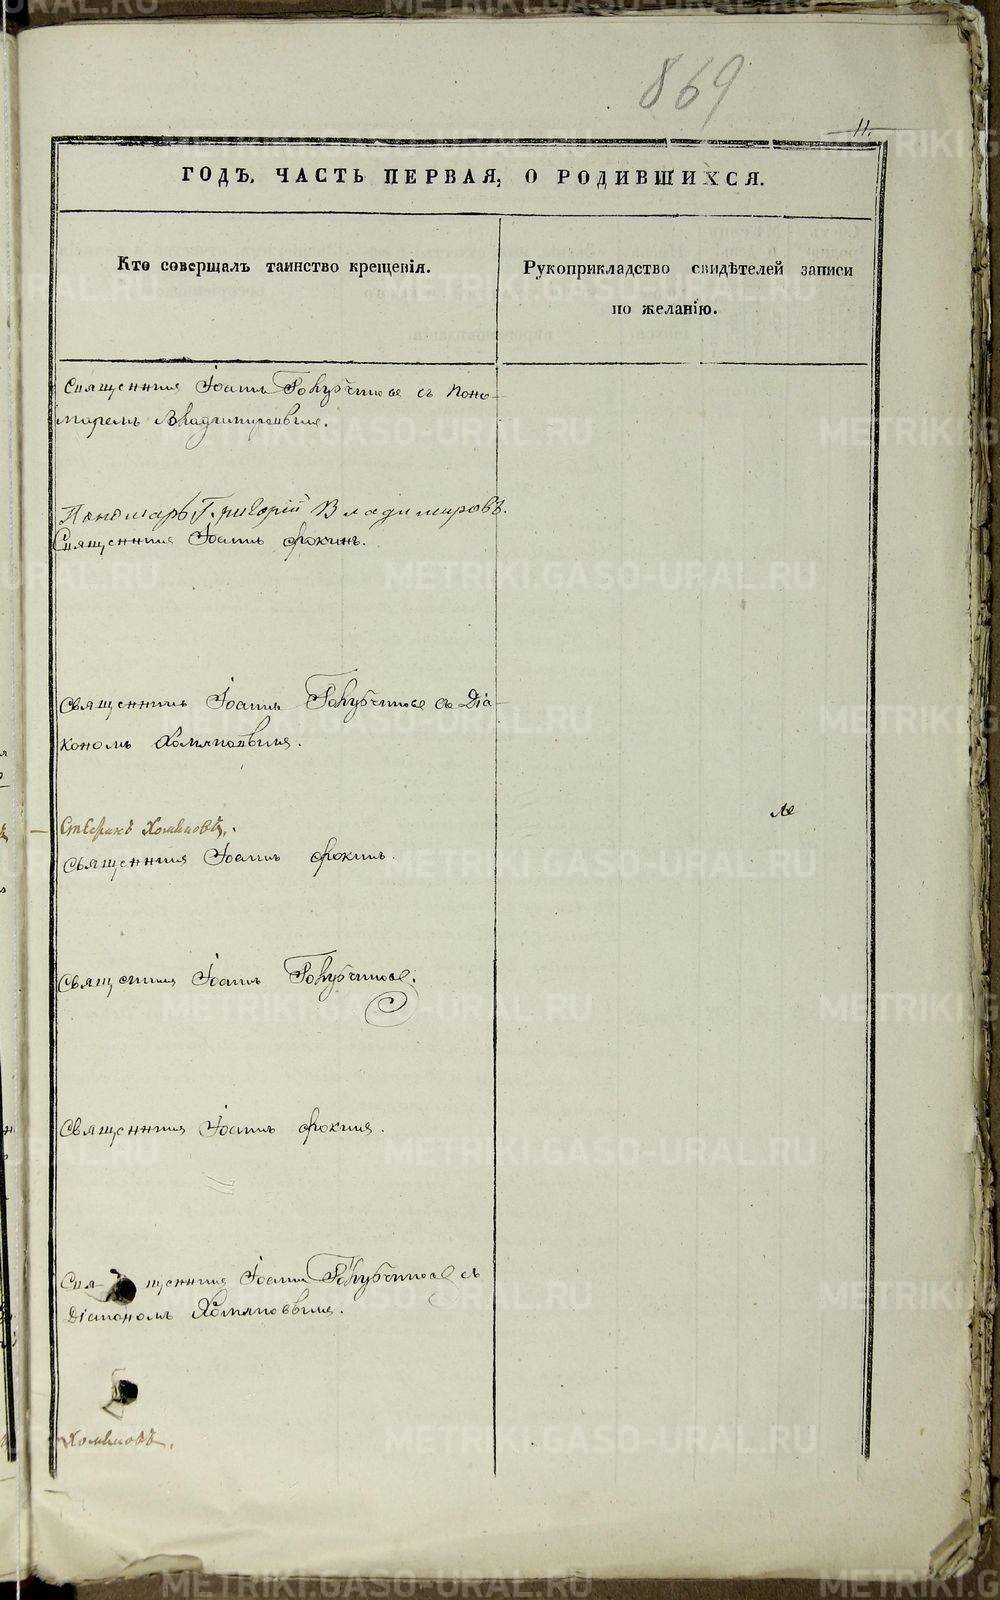 869
11.
ГОДЪ. ЧАСТЬ ПЕРВАЯ, О РОДИВШИХСЯ.
Кто совершалъ таинство крещенія.
Рукоприкладство свидѣтелей записи
по желанію.
Священникъ Іоаннъ съ Поно-
маремъ Владимировымъ.
Пономарь Григорій Владимировъ.
Священникъ Іоаннъ Фокинъ.
Священникъ Іоаннъ съ Діа-
кономъ Хомяковымъ.
Хомяковъ.
Священникъ Іоаннъ Фокинъ.
Священникъ Іоаннъ
Священникъ Іоаннъ Фокинъ.
Свя- щенникъ Іоаннъ съ
Діакономъ Хомяковымъ.
Хомяковъ.
METRIKI.GASO-URAL.RU